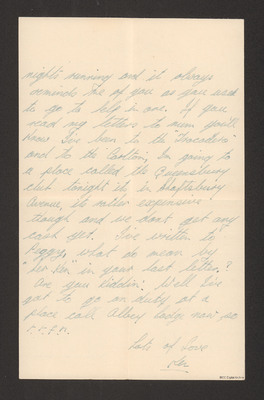 nights running and it always
reminds me of you as you used
to go to help in one. If you
read my letters to mum you'll
know I've been to the "Trocadero"
and to the Carlton, Im going to
a place called the
club tonight its in Shaftesbury
Avenue, its rather expensive
though and we dont get any
cash yet. I've written to
Peggy, what do mean by
"her Ken" in your last letter?
Are you kiddin. Well I've
got to go on duty at a
place call Abbey Lodge now so
Lots of love
Ken